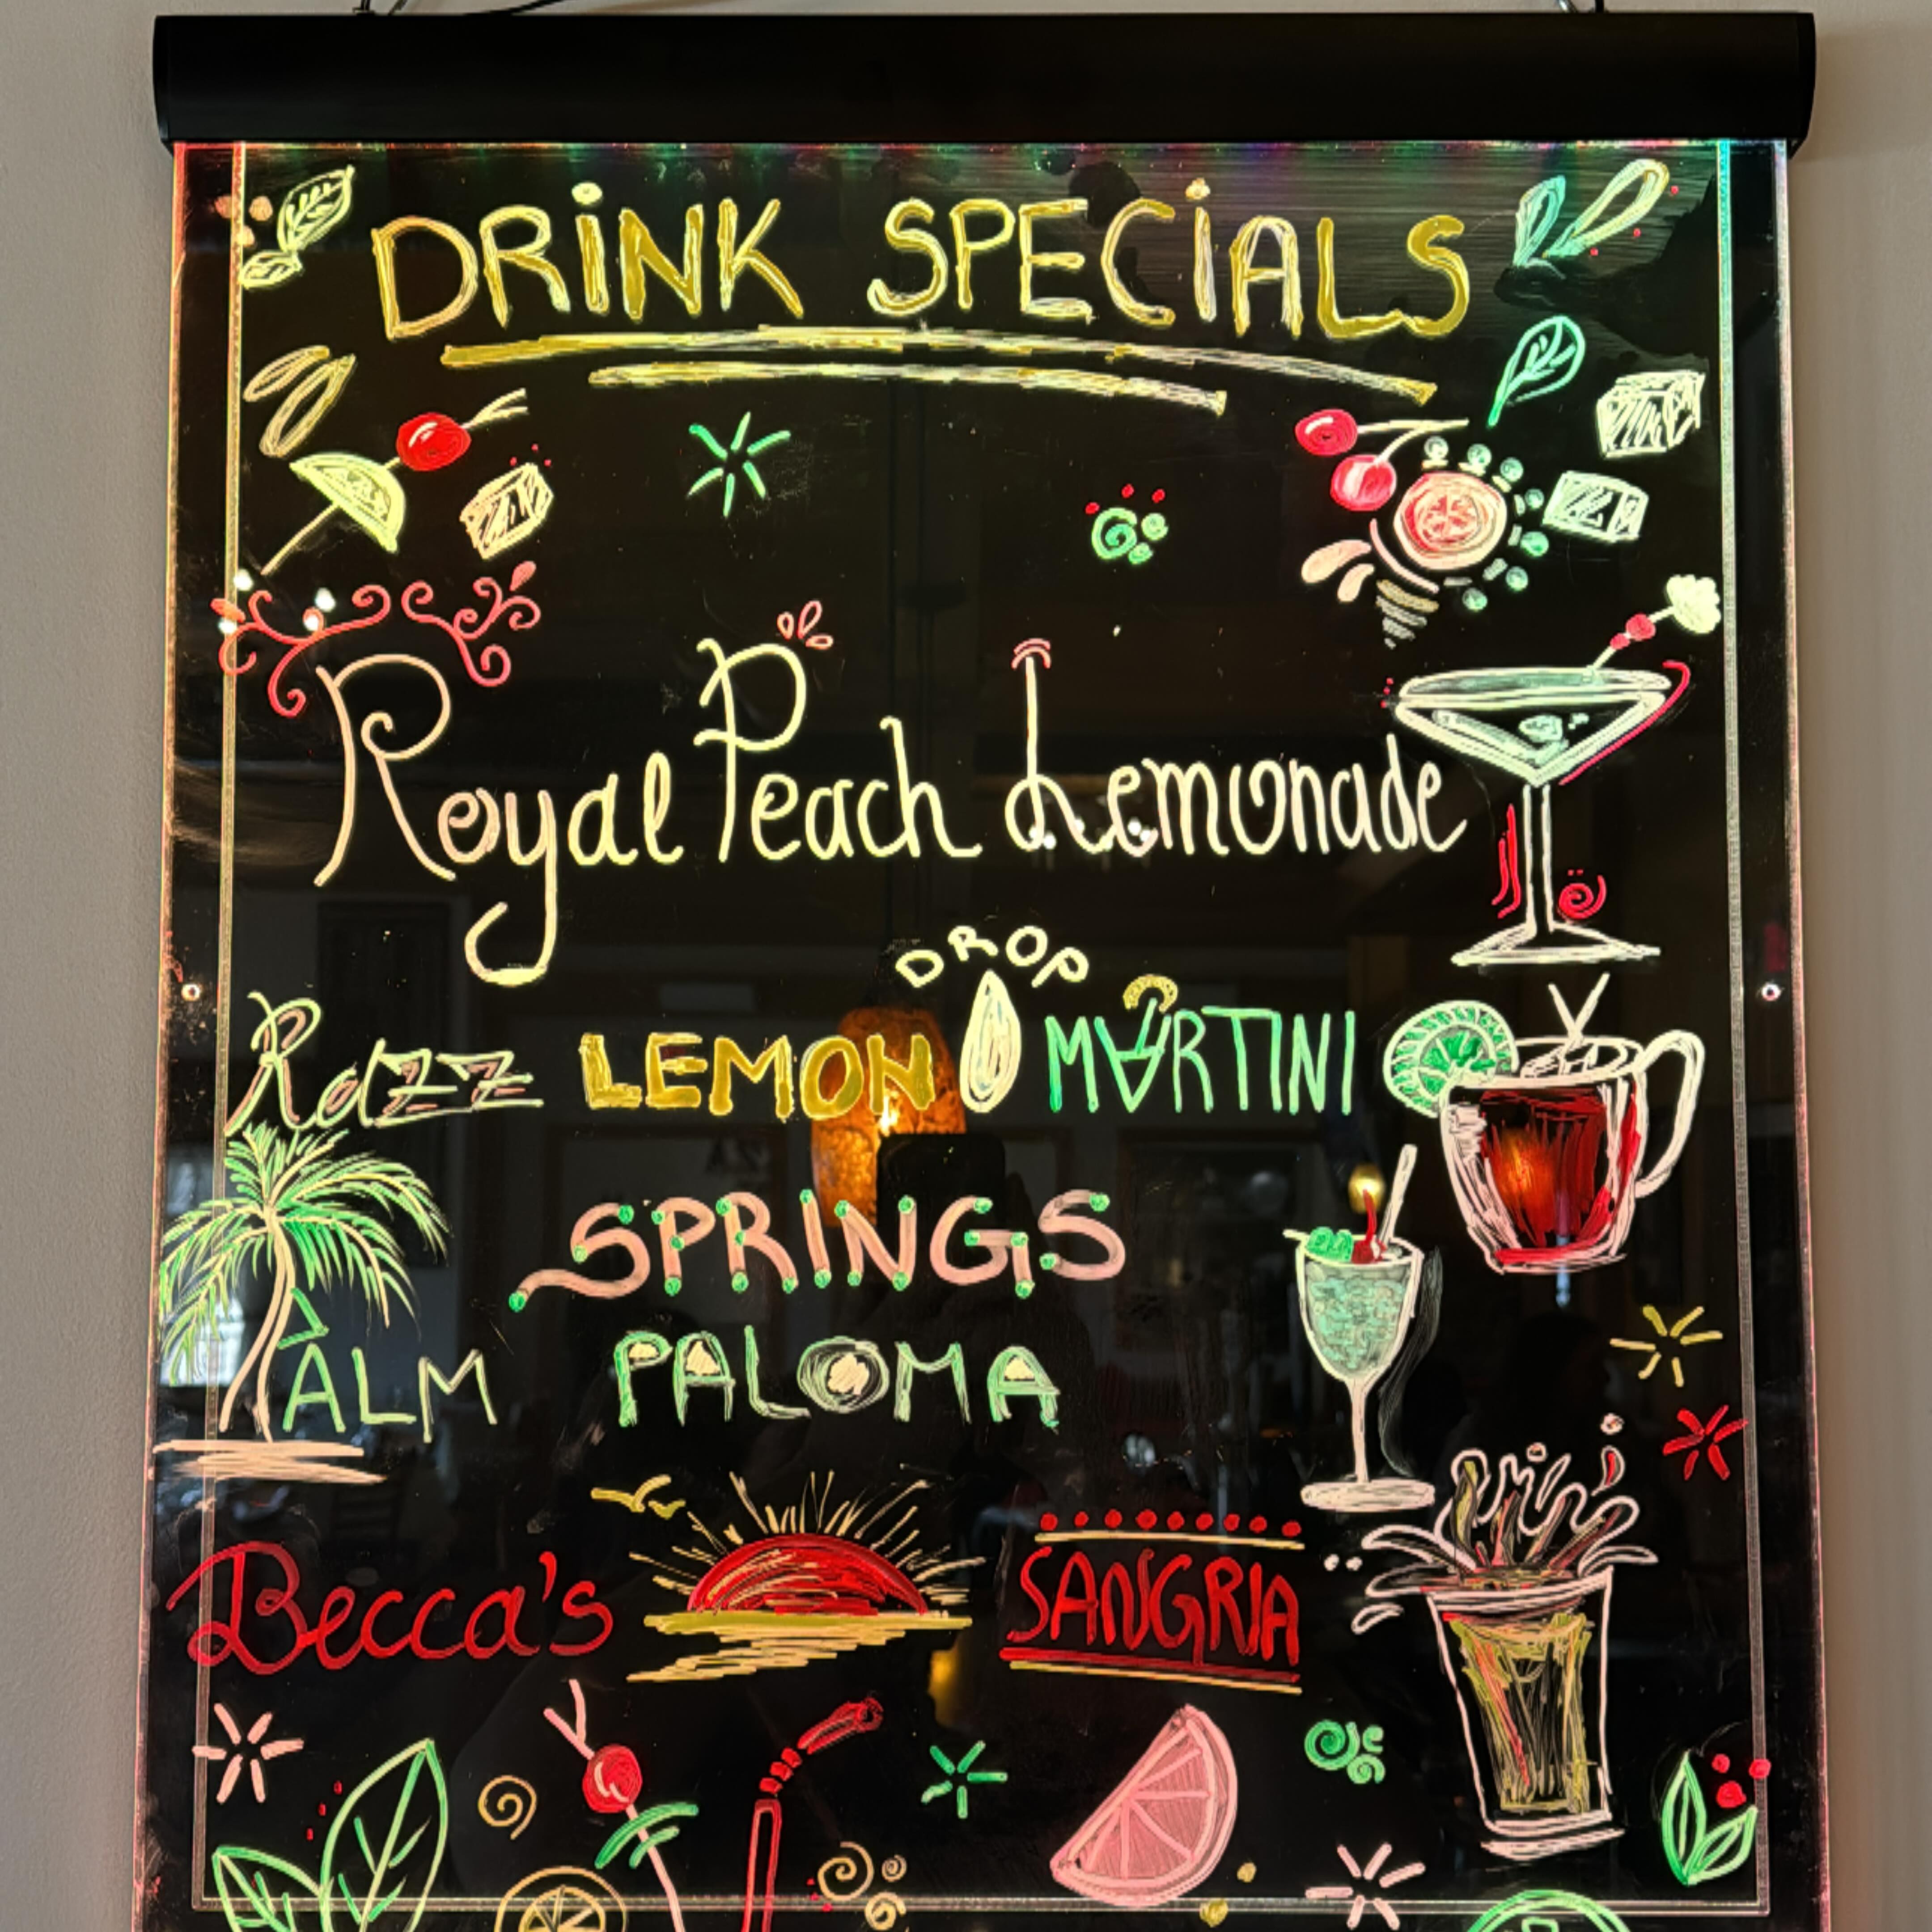 DRiNK SPECiALS
Royal Peach Lemonade
Razz LEMON DROP MARTINI
PALM SPRINGS
PALOMA
Becca's SANGRIA